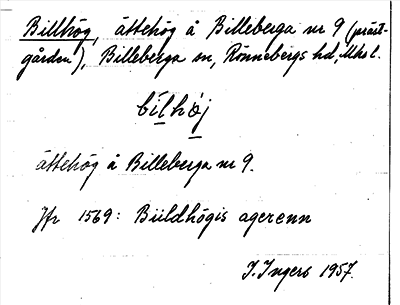 Billhög, ättehög å Billeberga nr 9 (präst-
gården), Billeberga sn, Rönnebergs hd, Mhs l.
bilhøj
ättehög å Billeberga nr 9.
Jfr 1569: Biildhögis agerenn
I. Ingers 1957.